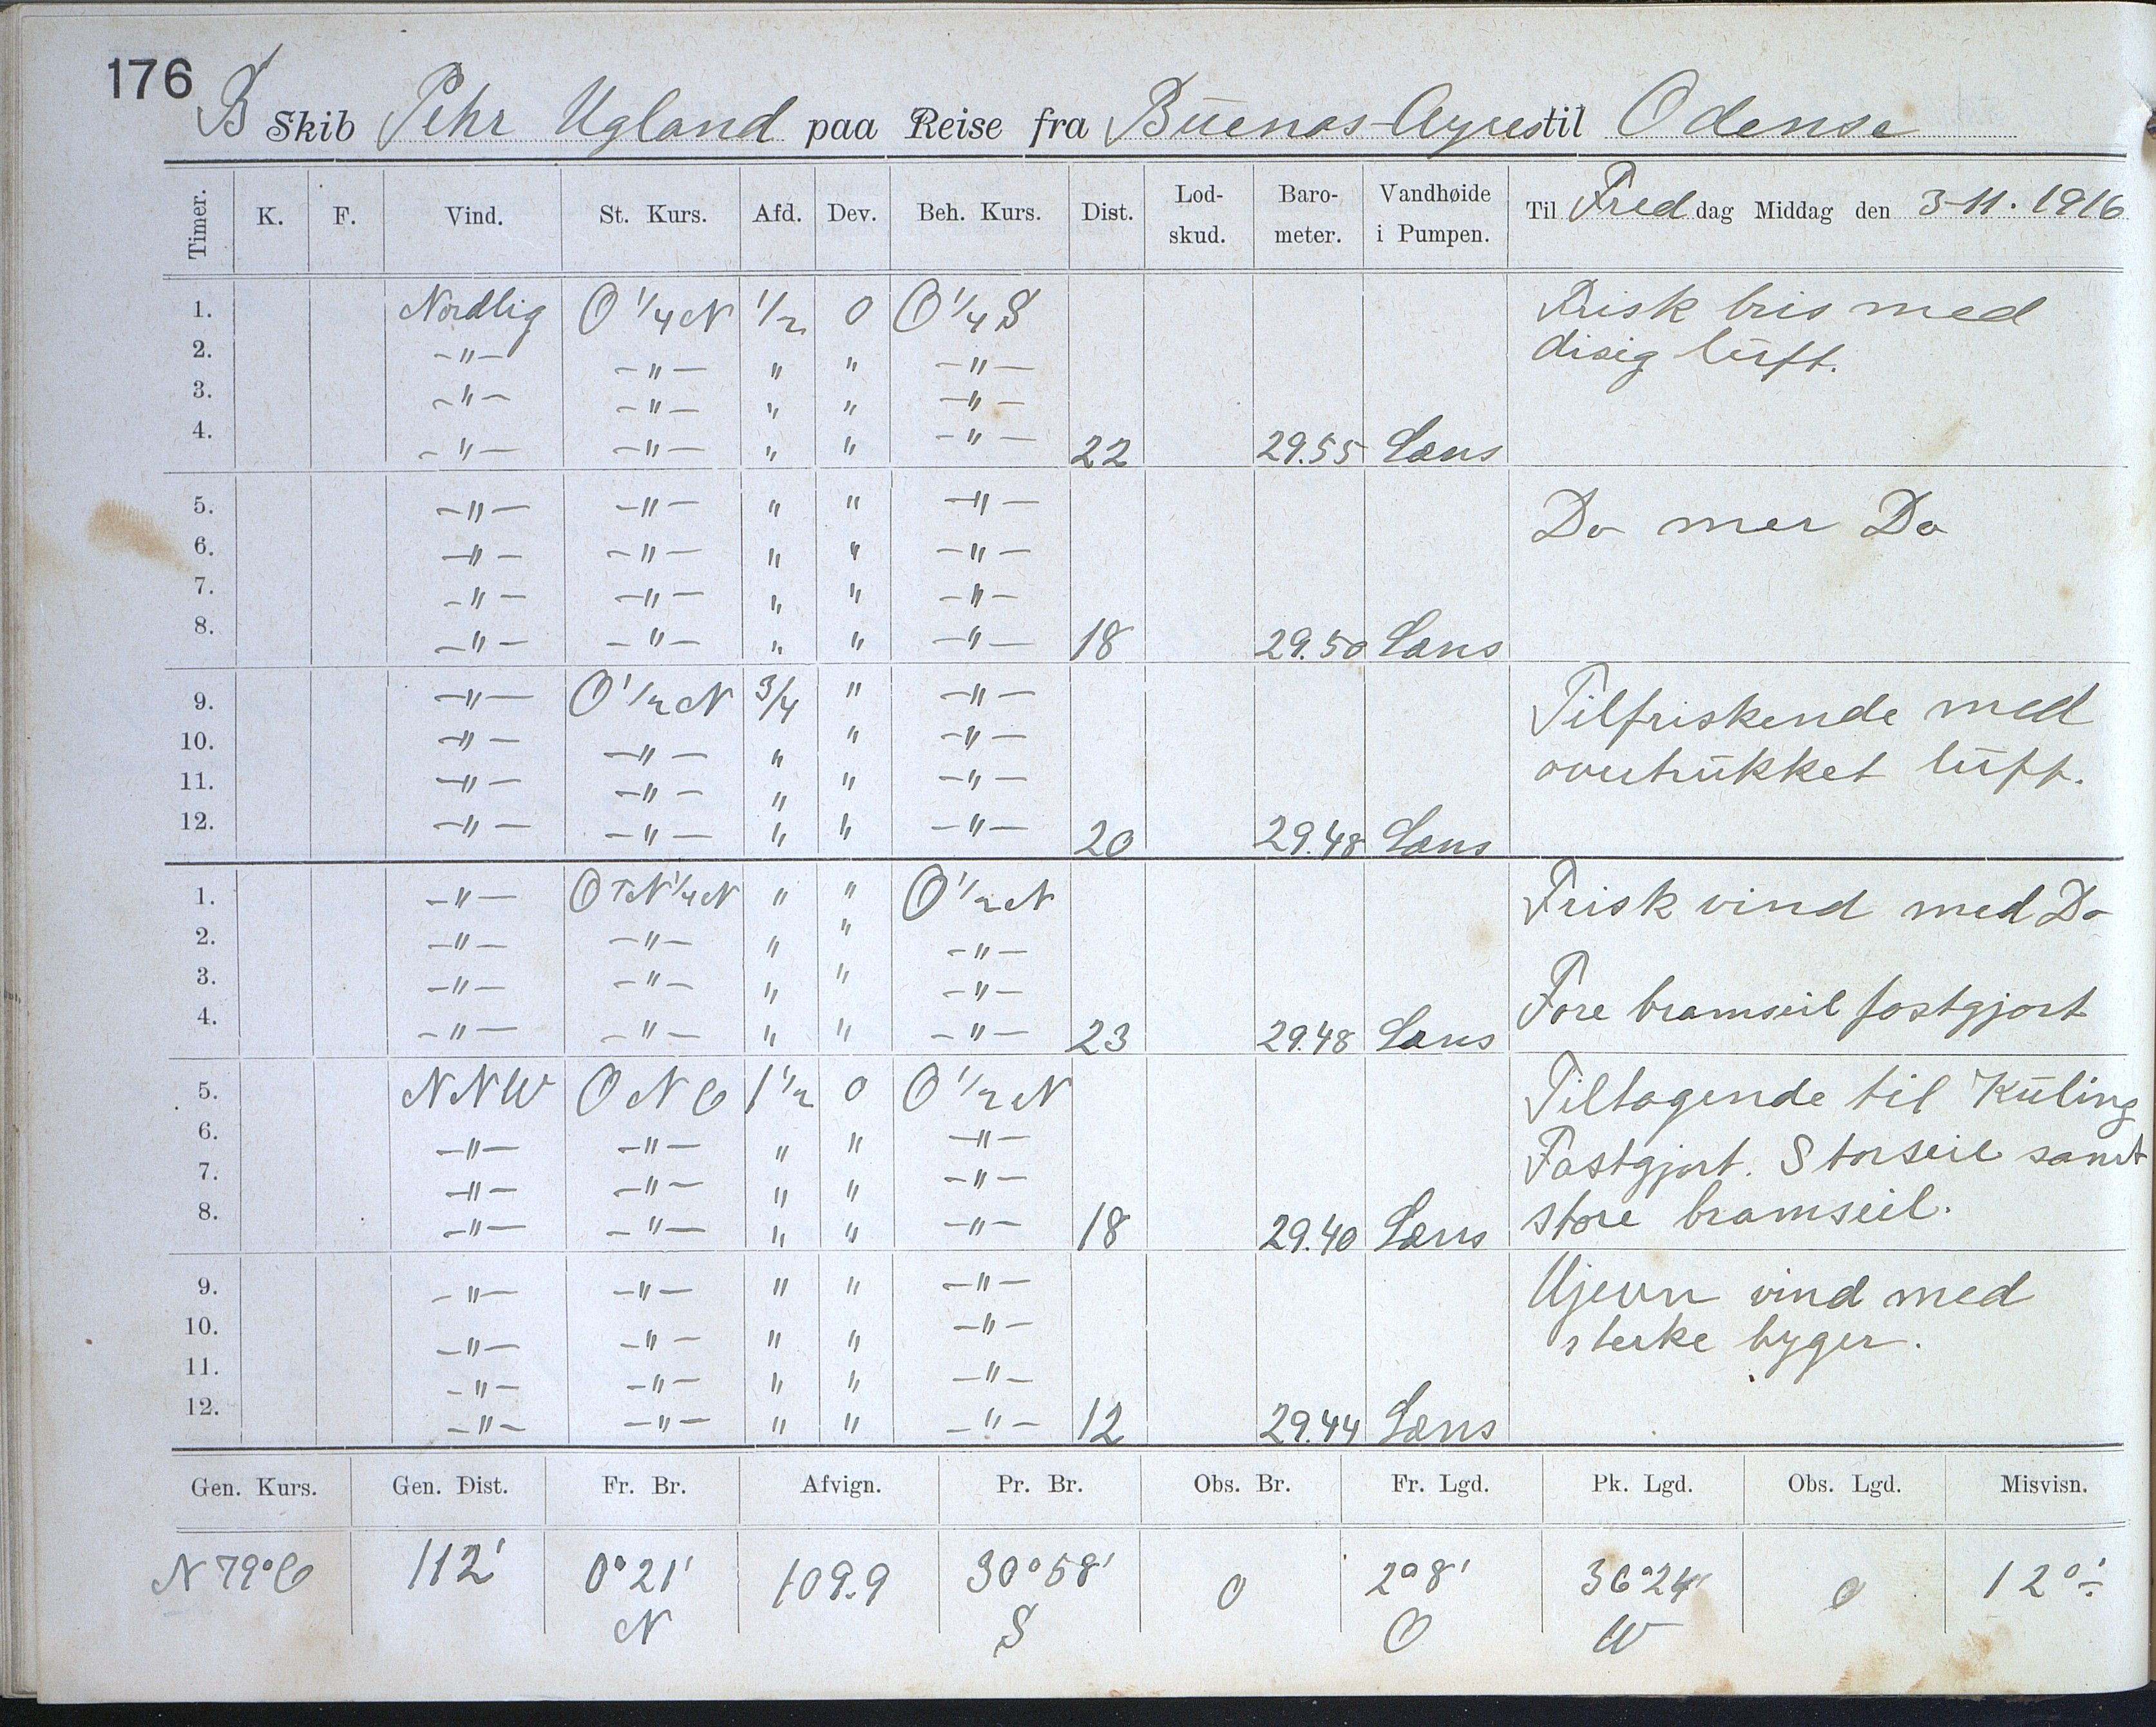 176
B Skib Pehr Ugland paa Reise fra Buenos-Ayres til Odense
Timer. K. F. Vind. St. Kurs. Afd. Dev. Beh. Kurs. Dist. Lod-skud. Baro-meter. Vandhøide i Pumpen. Til Freddag Middag den 3-11. 1916
1. Nordlig O 1/4 N 1/2 0 O 1/4 S Frisk bris med
2. -"- -"- " " -"- disig luft.
3. -"- -"- " " -"-
4. -"- -"- " " -"- 22 29.55 Læns
5. -"- -"- " " -"- Do mer Do
6. -"- -"- " " -"-
7. -"- -"- " " -"-
8. -"- -"- " " -"- 18 29.50 Læns
9. -"- O 1/2 N 3/4 " -"- Tilfriskende med
10. -"- -"- " " -"- overtrukket luft.
11. -"- -"- " " -"-
12. -"- -"- " " -"- 20 29.48 Læns
1. -"- OTN 1/4 N " " O 1/2 N Frisk vind med Do
2. -"- -"- " " -"-
3. -"- -"- " " -"- Fore bramseil fastgjort
4. -"- -"- " " -"- 23 29.48 Læns
5. NNW ONO 1 1/2 0 O 1/2 N Tiltagende til Kuling
6. -"- -"- " " -"- Fastgjort. Storseil samt
7. -"- -"- " " -"- store bramseil.
8. -"- -"- " " -"- 18 29.40 Læns
9. -"- -"- " " -"- Ujevn vind med
10. -"- -"- " " -"- sterke byger.
11. -"- -"- " " -"-
12. -"- -"- " " -"- 12 29.44 Læns
Gen. Kurs. Gen. Dist. Fr. Br. Afvign. Pr. Br. Obs. Br. Fr. Lgd. Pk. Lgd. Obs. Lgd. Misvisn.
N 79° O 112' 0° 21' 109.9 30° 58' 0 2° 8' 36° 24' 0 12°
N S O W